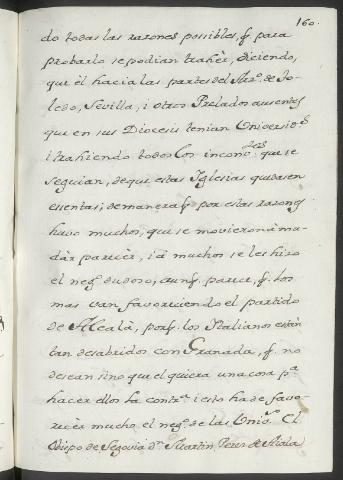 160.
do todas las razones possibles, q̃ para
probarlo se podian trahèr, diciendo,
que èl hacia las partes del Arz.º de To-
ledo, Sevilla, i otros Prelados ausentes
que en sus Diocesis tenian Universid.ˢ
i trahiendo todos los inconv.ᵗᵉˢ que se
seguian, de que estas Iglesias quedasen
esentas; de manera q̃ por estas razones
huvo muchos, que se movieron à mu-
dàr parecèr, i à muchos se les hizo
el neg.º dudoso; aunq̃. parece, q̃. los
mas van favoreciendo el partido
de Alcalà, porq̃. los Italianos estàn
tan desabridos con Granada, q̃. no
desean sino que el quiera una cosa p.ᵃ
hacer ellos la contr.ᵃ i esto ha de favo-
recèr mucho el neg.º de las Univ.ˢ El
Obispo de Segovia d.ⁿ Martin Perez de Aiala